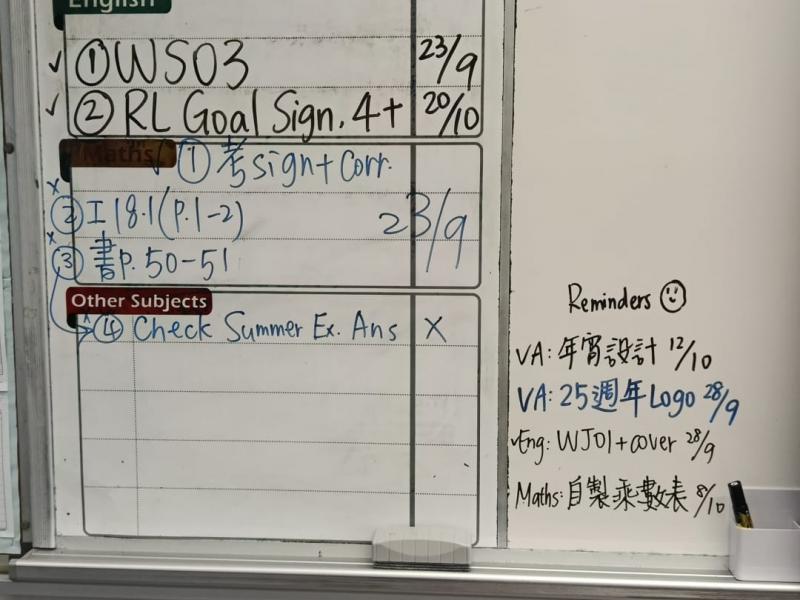 English
✓ ① WS03 23/9
✓ ② RL Goal Sign. 4+ 20/10
Maths ✓ ① 考 sign + Corr.
x ② 工 18.1 (P.1-2) 23/9
x ③ 書 P. 50-51
Other Subjects
x ④ Check Summer Ex. Ans X
Reminders ☺
VA: 年宵設計 12/10
VA: 25週年 Logo 28/9
✓Eng: WJ01 + cover 28/9
Maths: 自製乘數表 8/10